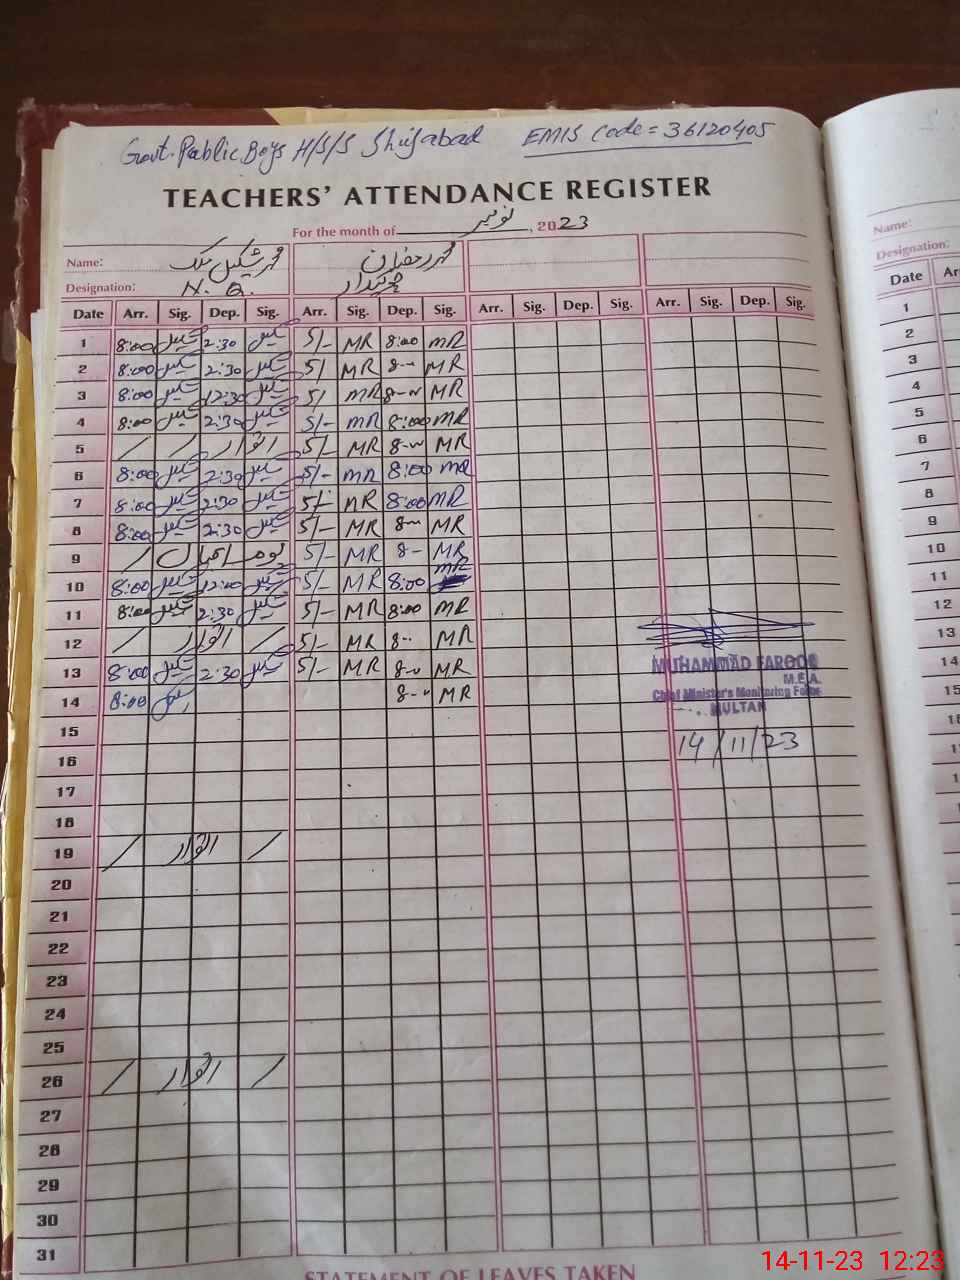 Govt. Public Boys H/S/S Shujabad EMIS Code = 36120405
TEACHERS' ATTENDANCE REGISTER
For the month of نومبر, 2023
Name: محمد شکیل ملک محمد رمضان
Designation: N. Q. چوکیدار
Date Arr. Sig. Dep. Sig. Arr. Sig. Dep. Sig. Arr. Sig. Dep. Sig. Arr. Sig. Dep. Sig.
1 8:00 شکیل 2:30 شکیل 5/- MR 8:00 MR
2 8:00 شکیل 2:30 شکیل 5/ MR 8-- MR
3 8:00 شکیل 12:30 شکیل 5/ MR 8-- MR
4 8:00 شکیل 2:30 شکیل 5/- MR 8:00 MR
5 / / اتوار / 5/- MR 8-- MR
6 8:00 شکیل 2:30 شکیل 5/- MR 8:00 MR
7 8:00 شکیل 2:30 شکیل 5/- MR 8:00 MR
8 8:00 شکیل 2:30 شکیل 5/- MR 8-- MR
9 / یوم اقبال 5/- MR 8- MR
10 8:00 شکیل 12:00 شکیل 5/- MR 8:00 MR
11 8:00 شکیل 2:30 شکیل 5/- MR 8:00 MR
12 / اتوار / 5/- MR 8-- MR
13 8:00 شکیل 2:30 شکیل 5/- MR 8-- MR
14 8:00 شکیل 8-- MR
MUHAMMAD FAROOQ
M.E.A.
Chief Minister's Monitoring Force
MULTAN
14/11/23
15
16
17
18
19 / اتوار /
20
21
22
23
24
25
26 / اتوار /
27
28
29
30
31
STATEMENT OF LEAVES TAKEN
Name:
Designation:
Date Arr
1
2
3
4
5
6
7
8
9
10
11
12
13
14
15
14-11-23 12:23